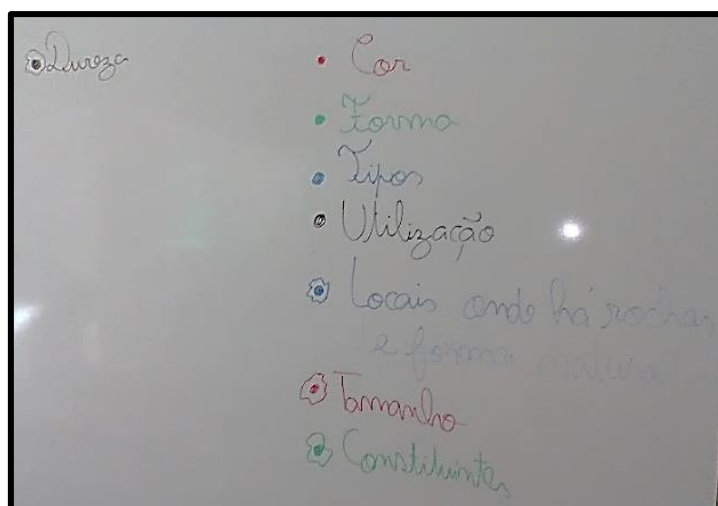 Dureza
Cor
Forma
Tipos
Utilização
Locais onde há rochas
e forma natural
Tamanho
Constituintes